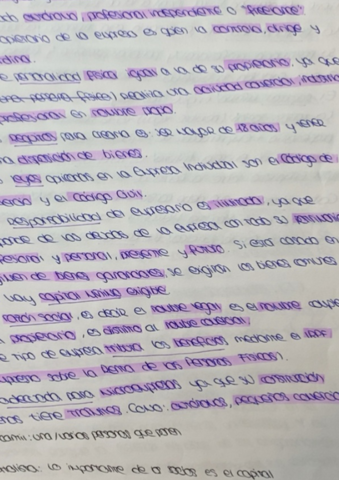 autónomo, profesional independiente o "freelance"
de la empresa es quien la controla, dirige y
personalidad física igual a la de su propietario, ya que
persona física) realiza una actividad comercial, industrial
profesional en nombre propio.
requisitos para crearla es: ser mayor de edad y tener
disposición de bienes.
leyes aplicadas en la Empresa Individual son el código de
y el código Civil.
responsabilidad de empresario es ilimitada, ya que
de las deudas de la empresa con todo su patrimonio
y personal, presente y futuro. Si está casado en
de bienes gananciales, se exigirán los bienes comunes
hay capital mínimo exigible.
razón social, es decir el nombre legal, es el nombre
propietario, es distinto al nombre comercial.
tipo de empresa tributa los beneficios mediante el
sobre la Renta de las Personas Físicas).
adecuada para microempresas ya que su constitución
tiene trámites. Como: autónomos, pequeños
una/varias personas que ponen
lo importante de los socios es el capital